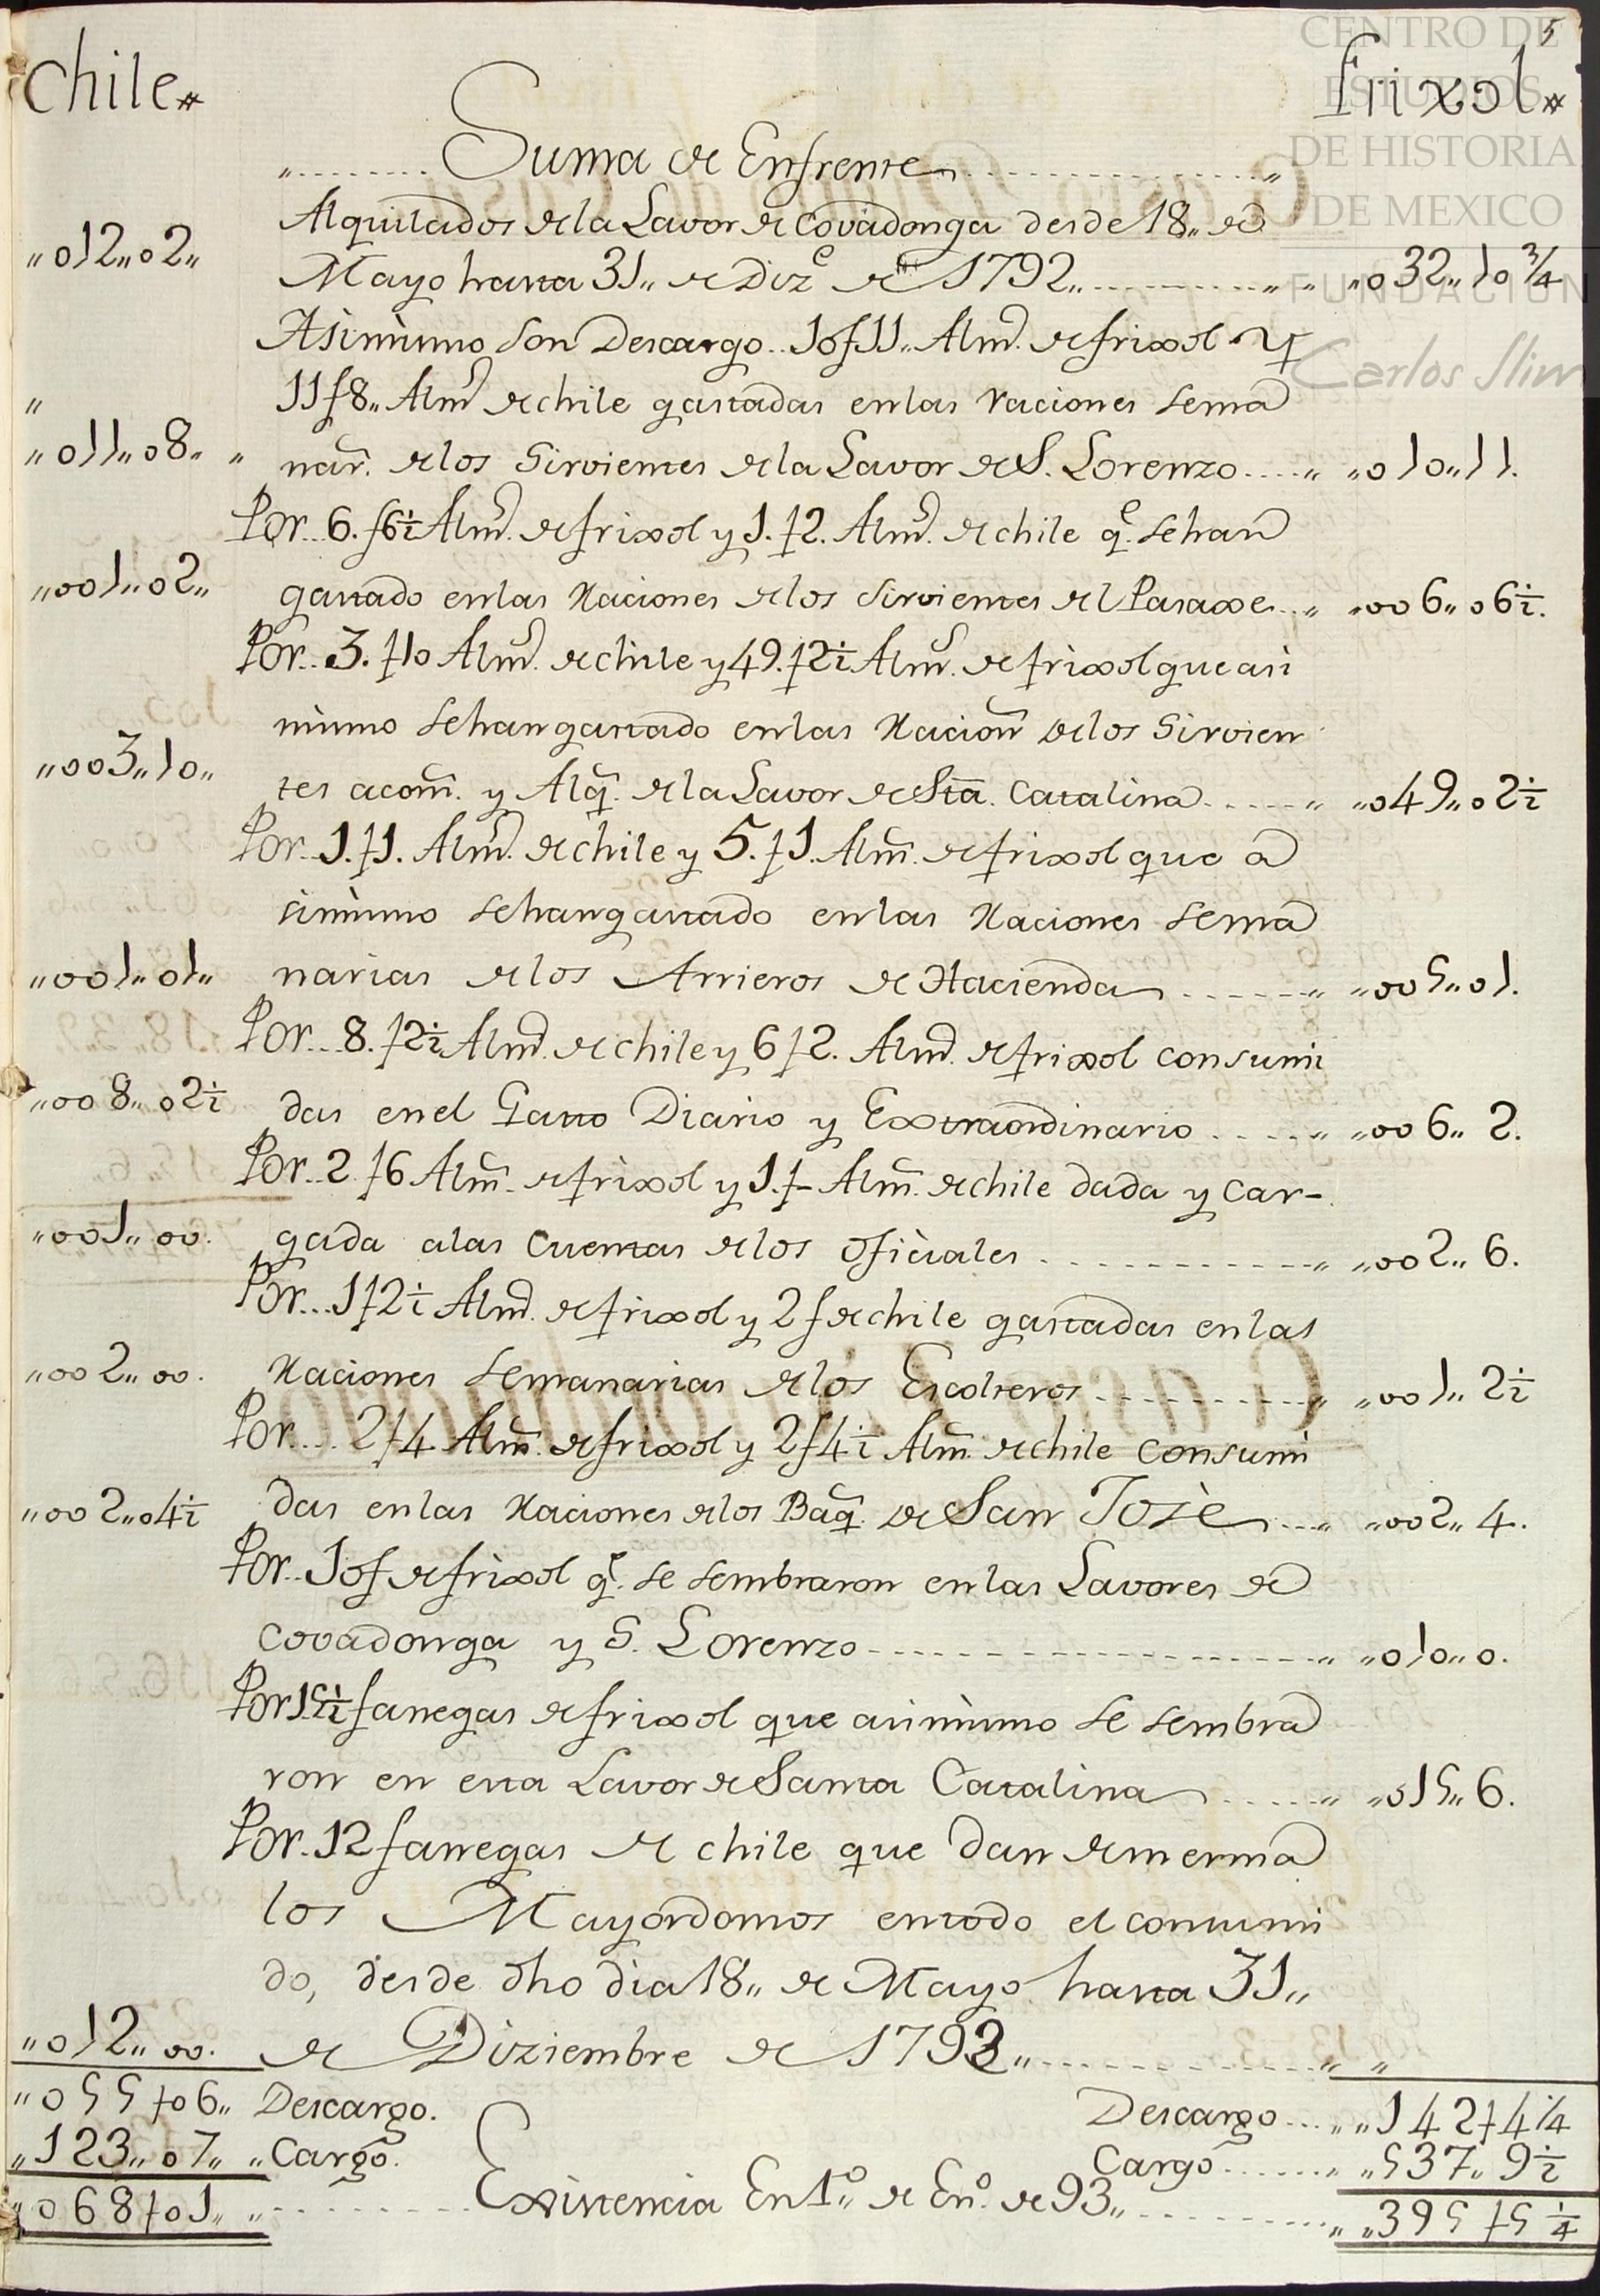 5
Chile# frixol#
„........ Suma de Enfrente ............„
Alquilados de la Lavor de Covadonga desde 18„ de
„012„02„ Mayo hasta 31„ de Dizᵉ de 1792„..........„ „ „032„10¾
Asimismo son Descargo.. 10f11„ Almˢ. de frixol y
„ 11f8„ Almˢ de chile gastadas en las raciones sema
„011„08„ „ nar.ˢ de los Sirvientes de la Lavor de S. Lorenzo....„ „010„11.
Por..6.f6½ Almˢ. de frixol y 1.f2. Almˢ. de chile q.ᵉ se han
„001„02„ gastado en las Raciones de los sirvientes del Pasaxe..„ „006„06½.
Por..3.f10 Almˢ. de chile y 49.f2½ Almˢ. de frixol que asi
mismo se han gastado en las Racion.ˢ de los Sirvien
„003„10„ tes acom.ˢ y Alq.ˢ de la Lavor de Sta. Catalina.....„ „049„02½
Por..1.f1. Almˢ. de chile y 5.f1. Almˢ. de frixol que a
simismo se han gastado en las Raciones sema
„001„01„ narias de los Arrieros de Hacienda......„ „005„01.
Por...8.f2½ Almˢ. de chile y 6f2. Almˢ. de frixol consumi
„008„02½ das en el Gasto Diario y Extraordinario.....„ „006„2.
Por..2 f6 Almˢ. de frixol y 1.f- Almˢ. de chile dada y car-
„001„00. gada a las Cuentas de los oficiales............„ „002„6.
Por...1f2½ Almˢ. de frixol y 2f de chile gastadas en las
„002„00. Raciones semanarias de los Escolteros..........„ „001„2½
Por....2f4 Almˢ. de frixol y 2f4½ Almˢ. de chile consumi
„002„04½ das en las Raciones de los Baq.ˢ de San Josè....„ „002„4.
Por..10f de frixol q.ᵉ se sembraron en las Lavores de
Covadonga y S. Lorenzo..................„ „010„0.
Por 15½ fanegas de frixol que asimismo se sembra
ron en esta Lavor de Santa Catalina......„ „015„6.
Por..12 fanegas de chile que dan de merma
los Mayordomos en todo el consumi
do, desde dho dia 18„ de Mayo hasta 31„
„012„00. de Diziembre de 1792„............„ „
„055f06„ Descargo. Descargo...„„142f4¼
„123„07„ „Cargo. Cargo......„„537„9½
„068f01„ „..........Existencia En 1º„ de En.º de 93„..........„„395f5¼
CENTRO DE
ESTUDIOS
DE HISTORIA
DE MEXICO
FUNDACIÓN
Carlos Slim